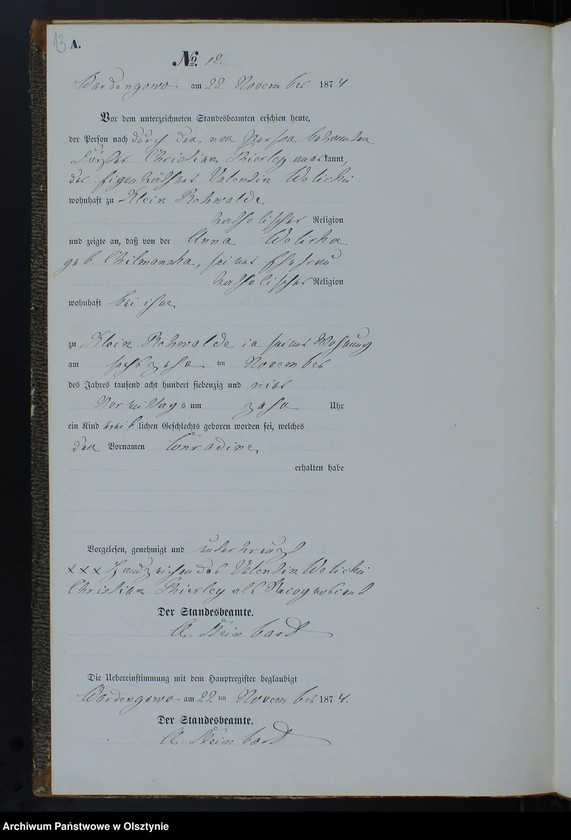 13 A.
No. 12.
Wardengowo am 22 November 1874
Vor dem unterzeichneten Standesbeamten erschien heute,
der Person nach durch den, von Person bekannten
Christian Thierley anerkannt,
der Eigenkäthner Valentin Welicki
wohnhaft zu Klein Rohwalde,
katholischer Religion
und zeigte an, daß von der Anna Welicka
geb. Chilmanska, seiner Ehefrau
katholischer Religion
wohnhaft bei ihm
zu Klein Rohwalde in seiner Wohnung
am sechszehn ten November
des Jahres tausend acht hundert siebenzig und vier
Vormittags um zehn Uhr
ein Kind weiblichen Geschlechts geboren worden sei, welches
den Vornamen Conradine,
erhalten habe
Vorgelesen, genehmigt und unterkreuzt
xxx Handzeichen des Valentin Welicki
Christian Thierley als Recognoscent
Der Standesbeamte.
A. Steinbart
Die Uebereinstimmung mit dem Hauptregister beglaubigt
Wardengowo am 22 ten November 1874.
Der Standesbeamte.
A. Steinbart
Archiwum Państwowe w Olsztynie